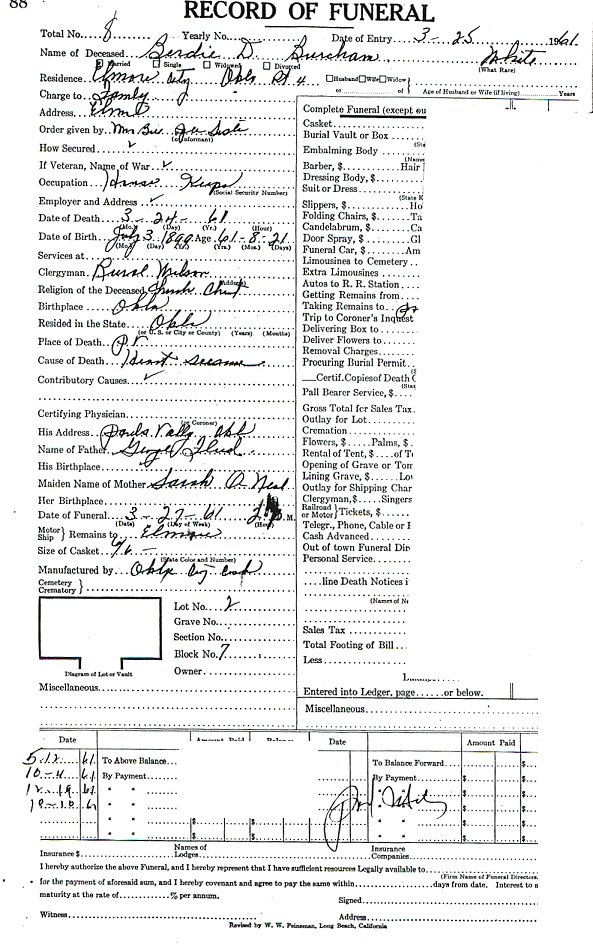 88
RECORD OF FUNERAL
Total No. 8 Yearly No. Date of Entry 3-25 1961
Name of Deceased Birdie D. Burcham White
Married Single Widowed Divorced (What Race)
Residence Elmore City Okla Rt 4 Husband Wife Widow
or of Age of Husband or Wife (if living) Years
Charge to Family
Address Elmo
Order given by Mrs
(or Informant)
How Secured ✓
If Veteran, Name of War ✓
Occupation House Keeper
(Social Security Number)
Employer and Address ✓
Date of Death 3-24-61
(Mo.) (Day) (Yr.) (Hour)
Date of Birth July 3 1899 Age 61-8-21
(Mo.) (Day) (Yr.) (Yrs.) (Mos.) (Days)
Services at
Clergyman Rural Wilson
(Address)
Religion of the Deceased Church Christ
Birthplace Okla
Resided in the State Okla
(or U.S. or City or County) (Years) (Months)
Place of Death
Cause of Death Heart
Contributory Causes ✓
Certifying Physician
(or Coroner)
His Address Pauls Valley Okl
Name of Father George
His Birthplace
Maiden Name of Mother Sarah O Neal
Her Birthplace
Date of Funeral 3-27-61 2 P.M.
(Date) (Day of Week) (Hour)
Motor Ship Remains to Elmore
Size of Casket 6/6 -
(State Color and Number)
Manufactured by Okla City Cask
Cemetery
Crematory
Lot No. 2
Grave No.
Section No.
Block No. 7
Owner
Diagram of Lot or Vault
Miscellaneous
Complete Funeral (except ou
Casket
Burial Vault or Box
(Sta
Embalming Body
(Name
Barber, $ Hair
Dressing Body, $
Suit or Dress
(State K
Slippers, $ Ho
Folding Chairs, $ Ta
Candelabrum, $ Ca
Door Spray, $ Gl
Funeral Car, $ Am
Limousines to Cemetery
Extra Limousines
Autos to R. R. Station
Getting Remains from
Taking Remains to
Trip to Coroner's Inquest
Delivering Box to
Deliver Flowers to
Removal Charges
Procuring Burial Permit
Certif. Copies of Death C
(Stat
Pall Bearer Service, $
Gross Total for Sales Tax
Outlay for Lot
Cremation
Flowers, $ Palms, $
Rental of Tent, $ of T
Opening of Grave or Tom
Lining Grave, $ Lo
Outlay for Shipping Char
Clergyman, $ Singers
Railroad or Motor Tickets, $
Telegr., Phone, Cable or R
Cash Advanced
Out of town Funeral Dir
Personal Service
line Death Notices i
(Names of Ne
Sales Tax
Total Footing of Bill
Less
Entered into Ledger, page or below.
Miscellaneous
Date Amount Paid Balance Date Amount Paid
5-12 61 To Above Balance To Balance Forward $ $
10-4 61 By Payment By Payment $ $
12-19 61 " " " " $ $
" " " " $ $
" " $ $ " " $ $
" " $ $ " " $ $
Insurance $ Names of Lodges Insurance Companies
I hereby authorize the above Funeral, and I hereby represent that I have sufficient resources Legally available to
(Firm Name of Funeral Directors.
for the payment of aforesaid sum, and I hereby covenant and agree to pay the same within days from date. Interest to a
maturity at the rate of % per annum. Signed
Witness Address
Revised by W. W. Peineman, Long Beach, California